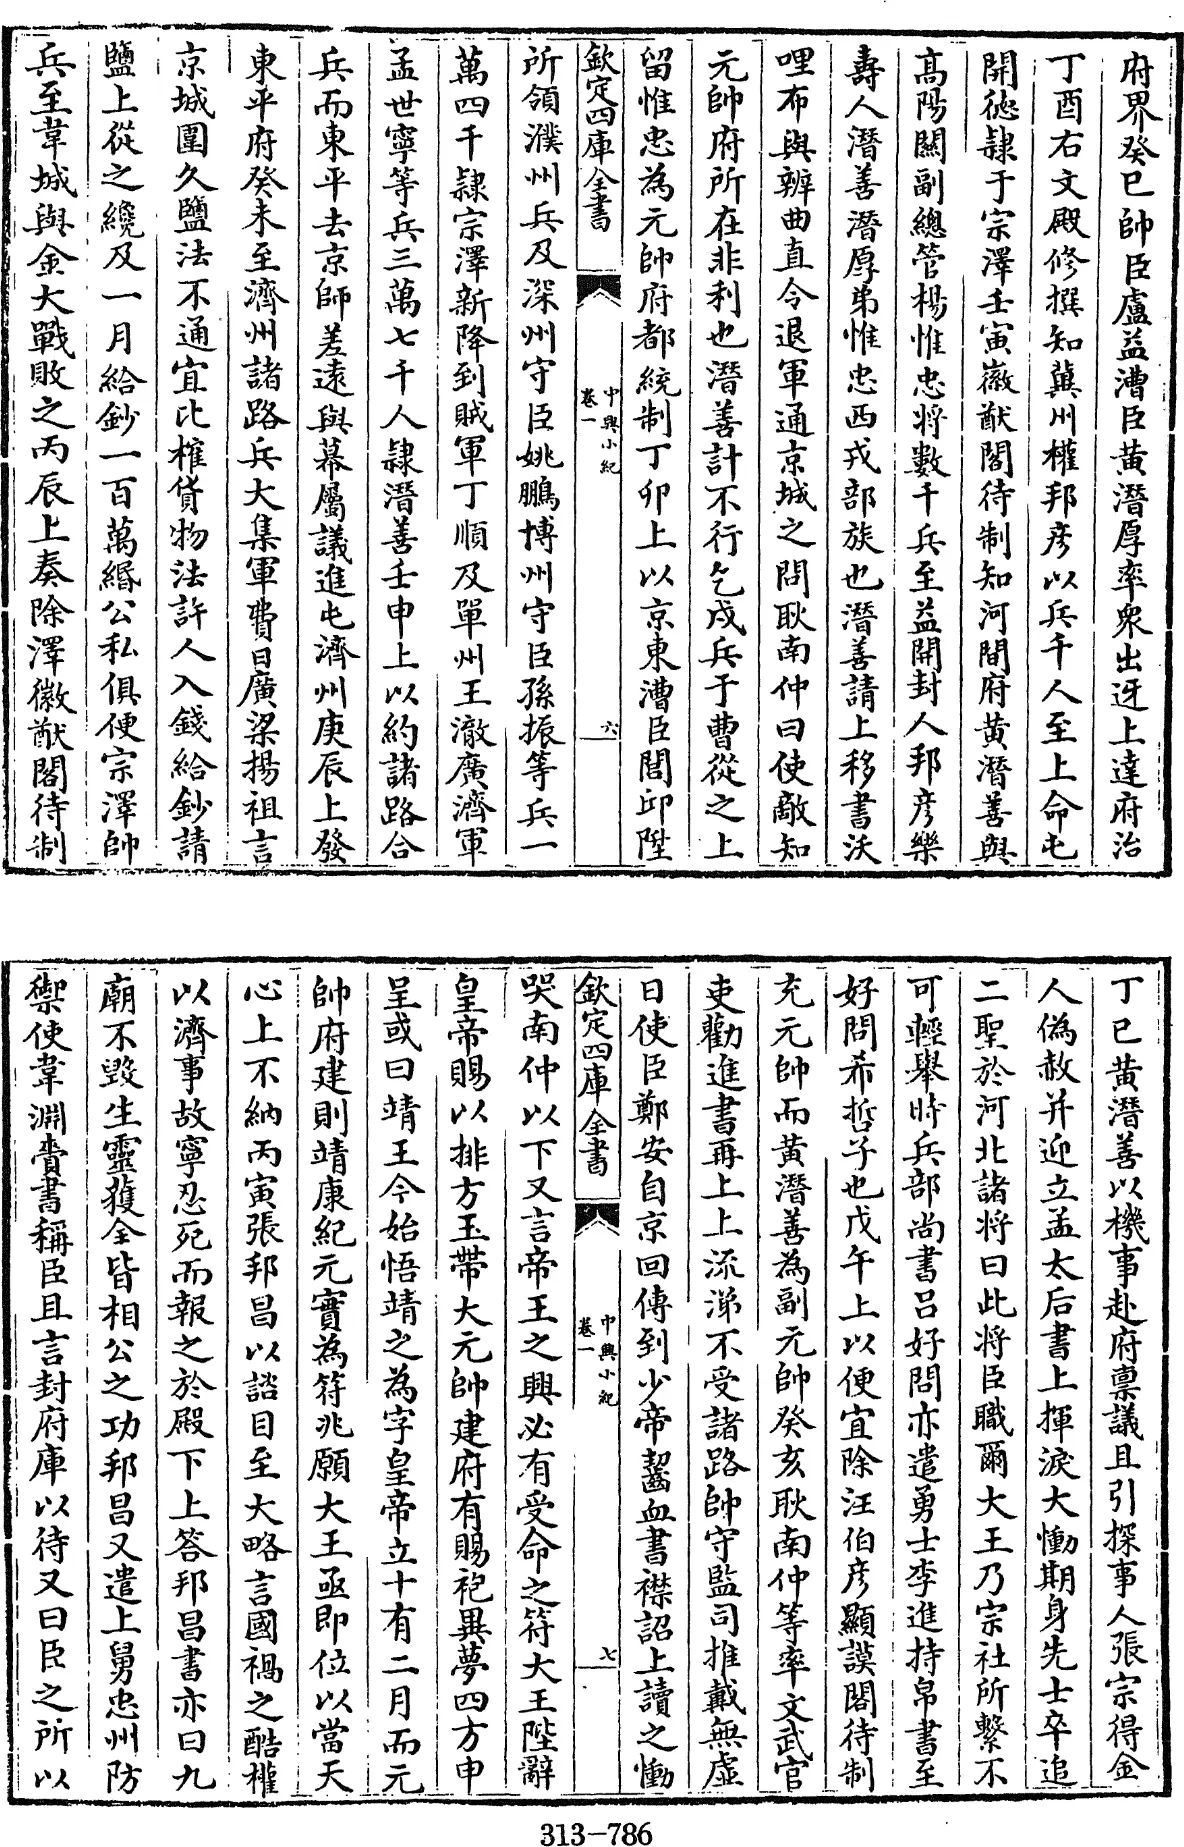 府界癸巳帥臣盧益漕臣黄潛厚率衆出迓上達府治
丁酉右文殿修撰知冀州權邦彦以兵千人至上命屯
開徳隷于宗澤壬寅徽猷閣待制知河間府黄潛善與
高陽關副總管楊惟忠將數千兵至益開封人邦彦樂
壽人潛善潛厚弟惟忠西戎部族也潛善請上移書沃
哩布與辨曲直令退軍通京城之問耿南仲曰使敵知
元帥府所在非利也潛善計不行乞戍兵于曹從之上
留惟忠為元帥府都統制丁卯上以京東漕臣閭邱陞
欽定四庫全書
中興小紀
卷一
六
所領濮州兵及深州守臣姚鵬博州守臣孫振等兵一
萬四千隷宗澤新降到賊軍丁順及單州王澈廣濟軍
孟世寧等兵三萬七千人隷潛善壬申上以約諸路合
兵而東平去京師差遠與幕屬議進屯濟州庚辰上發
東平府癸未至濟州諸路兵大集軍費日廣梁揚祖言
京城圍久鹽法不通宜比榷貨物法許人入錢給鈔請
鹽上從之纔及一月給鈔一百萬緡公私俱便宗澤帥
兵至韋城與金大戰敗之丙辰上奏除澤徽猷閣待制
丁巳黄潛善以機事赴府禀議且引探事人張宗得金
人偽赦并迎立孟太后書上揮淚大慟期身先士卒追
二聖於河北諸將曰此將臣職爾大王乃宗社所繫不
可輕舉時兵部尚書吕好問亦遣勇士李進持帛書至
好問希哲子也戊午上以便宜除汪伯彦顯謨閣待制
充元帥而黄潛善為副元帥癸亥耿南仲等率文武官
吏勸進書再上上流涕不受諸路帥守監司推戴無虚
日使臣鄭安自京回傳到少帝齧血書襟詔上讀之慟
欽定四庫全書
中興小紀
卷一
七
哭南仲以下又言帝王之興必有受命之符大王陛辭
皇帝賜以排方玉帶大元帥建府有賜袍異夢四方申
呈或曰靖王今始悟靖之為字皇帝立十有二月而元
帥府建則靖康紀元實為符兆願大王亟即位以當天
心上不納丙寅張邦昌以諮目至大略言國禍之酷權
以濟事故寧忍死而報之於殿下上答邦昌書亦曰九
廟不毁生靈獲全皆相公之功邦昌又遣上舅忠州防
禦使韋淵賫書稱臣且言封府庫以待又曰臣之所以
313-786